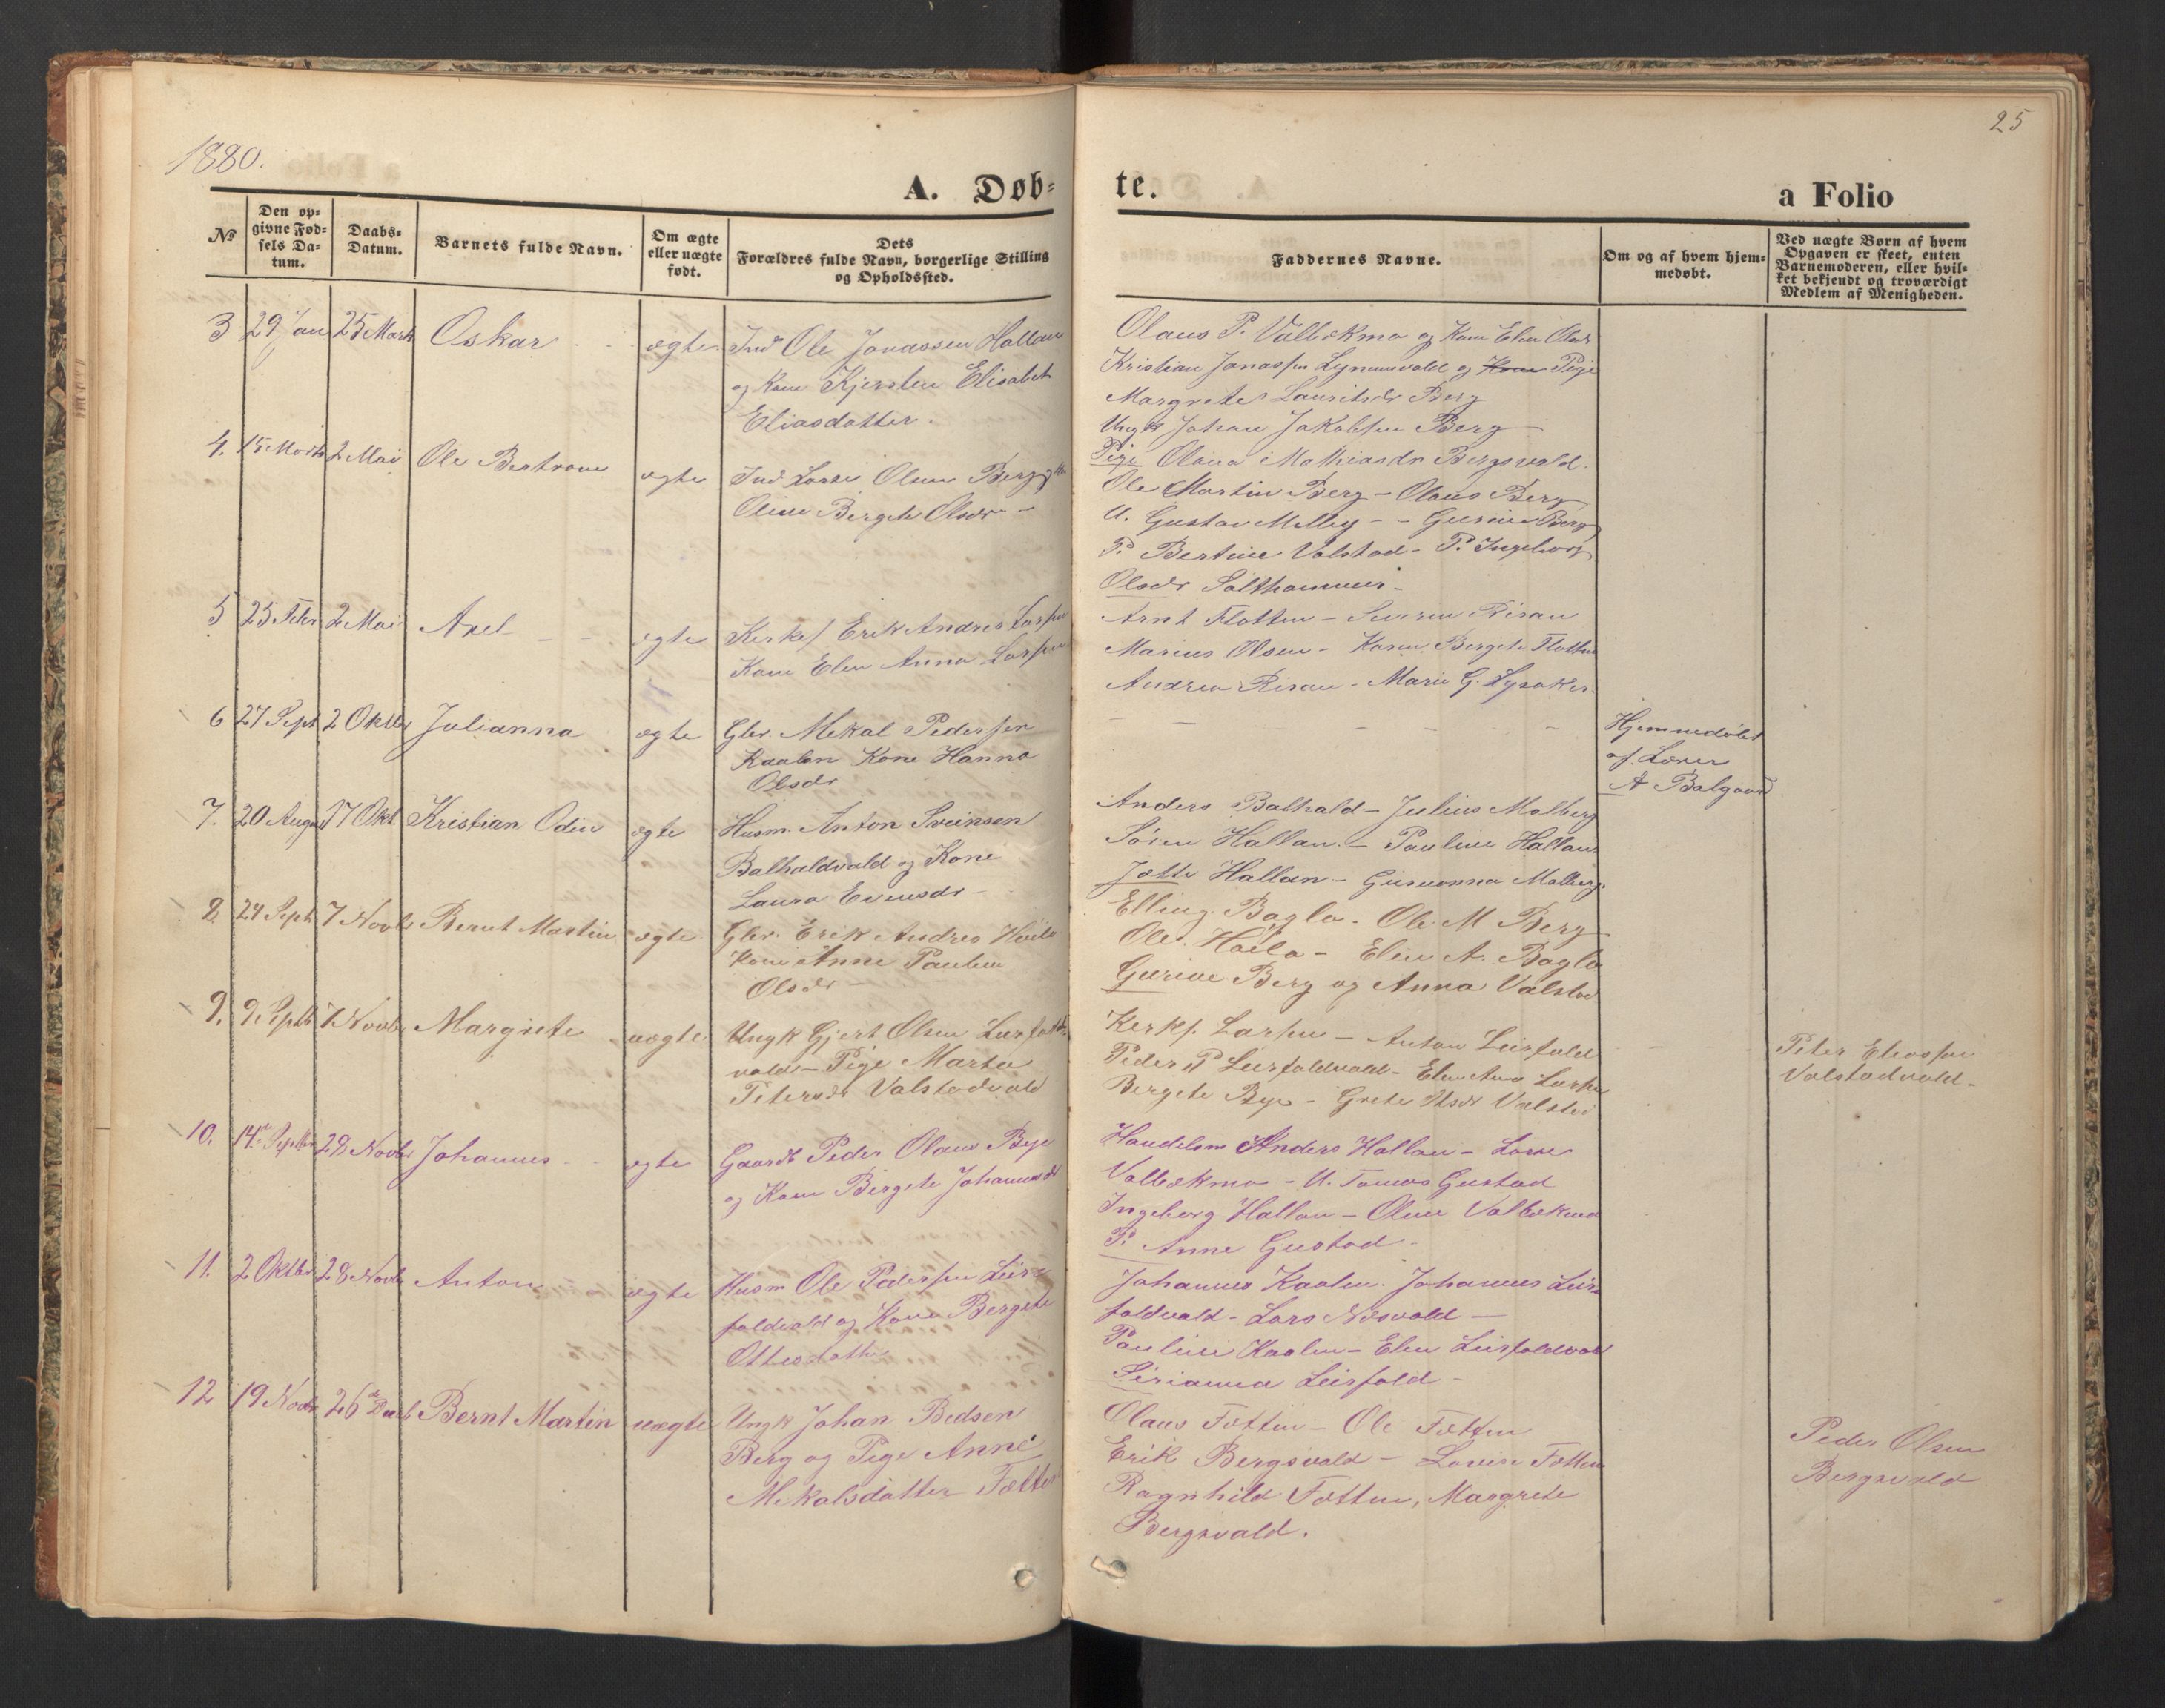 1880.
25
A. Døb=
te.
a Folio
No
Den op=
givne Fød=
sels Da=
tum.
Daabs=
Datum.
Barnets fulde Navn.
Om ægte
eller uægte
født.
Dets
Forældres fulde Navn, borgerlige Stilling
og Opholdssted.
Faddernes Navne.
Om og af hvem hjem=
medøbt.
Ved uægte Børn af hvem
Opgaven er skeet, enten
Barnemoderen, eller hvil=
ket bekjendt og troværdigt
Medlem af Menigheden.
3 29 Jan 25 Marts Oskar ægte Ind Ole Jonassen Hallan
og Kone Kjersten Elisabet
Eliasdatter.
Olaus P. Valbækmo og Kone Elen Olsdr
Kristian Jonassen Lynumvald og Kone Pige
Margrete Lauritsdr Berg
Ungk Johan Jakobsen Berg
Pige Olava Mathiasdr Bergsvald.
4. 15 Marts 2 Mai Ole Bertrone ægte Ind Lorns Olsen Berg
Oline Bergete Olsdr
Ole Martin Berg - Olaus Berg
U. Gustav Melby - Gurine Berg
P. Bertine Valstad - P. Ingeborg
Olsdr Salthammer
5 25 Febr 2 Mai Axel ægte Kirkes Erik Andreas Larsen
Kone Elen Anna Larsen
Arnt Flotten - Severin Risan
Marius Olsen - Karen Bergete Flotten
Andrea Risan - Marie G. Lysaker
6 27 Sept 2 Oktbr Julianna ægte Gbr. Mekal Pedersen
Kaalen Kone Hanna
Olsdr
Hjemmedøbt
af Lærer
A Balgaard
7. 20 August 17 Okt. Kristian Odin ægte Husm. Anton Sveinsen
Balhaldvald og Kone
Laura Evensdr
Anders Balhald - Julius Molberg
Søren Hallan - Pauline Hallan
Jætte Hallan - Gurianna Molberg
8. 24 Sept 7 Novbr Bernt Martin ægte Gbr. Erik Andreas Høila
Kone Anne Pauline
Olsdr
Elling Bagla - Ole M Berg
Ole Høila - Elen A. Bagla
Gurine Berg og Anna Valstad
9. 9 Septb 7 Novbr Margrete uægte Ungk Gjert Olsen Leirfald=
vald - Pige Marta
Petersdr Valstadvald
Kerks. Larsen - Anton Leirfald
Peder P Leirfaldvald - Elen Anna Larsen
Bergete Bye - Grete Olsdr Valstad
Peter Eliassen
Valstadvald
10. 14de Septbr 28 Novbr Johannes ægte Gaardb Peder Olaus Bye
og Kone Bergete Johannesdr
Handelsm Anders Hallan - Lorns
Valbækmo - U. Tomas Gustad
Ingeborg Hallan - Oline Valbækmo
P. Anne Gustad
11. 2 Oktbr 28 Novbr Anton ægte Husm Ole Pedersen Leir=
faldvald og Kone Bergete
Ottesdatter
Johannes Kaalen. Johannes Leir=
faldvald - Lars Næsvald
Pauline Kaalen - Elen Leirfaldvald
Sirianna Leirfald
12 19 Novbr 26de Decb Bernt Martin uægte Ungk Johan Bedsen
Berg og Pige Anne
Mekalsdatter Fætten
Olaus Fætten - Ole Fætten
Erik Bergsvald - Lovise Fætten
Ragnhild Fætten, Margrete
Bergsvald.
Peder Olsen
Bergsvald